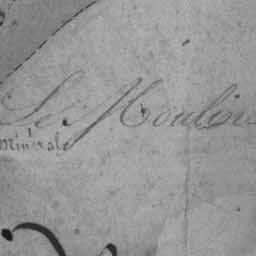 Le Moulin
Minérale